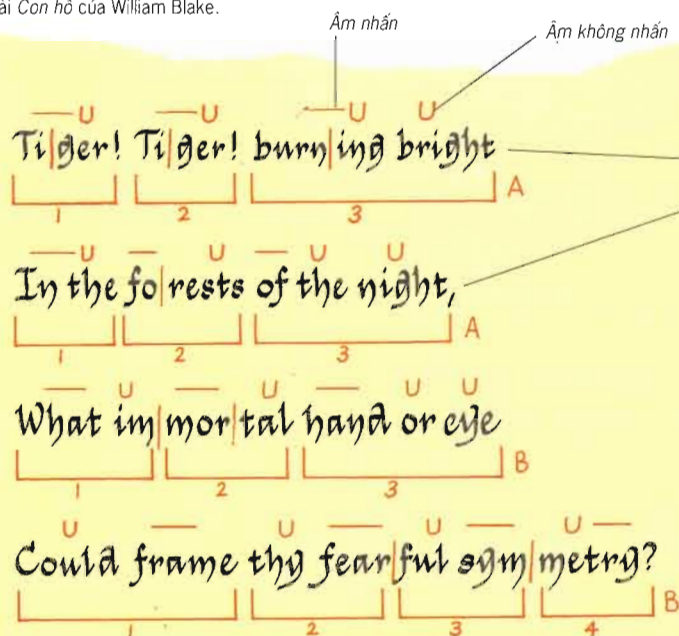 ài Con hổ của William Blake.
Âm nhấn
Âm không nhấn
— U — U — U U
Ti|ger! Ti|ger! burn|ing bright
1 2 3 A
— U — U — U U
In the fo|rests of the night,
1 2 3 A
— U — U — U U
What im|mor|tal hand or eye
1 2 3 B
U — U — U — U —
Could frame thy fear|ful sym|metry?
1 2 3 4 B